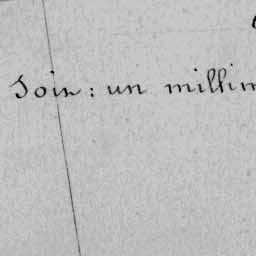 Soin : un millim